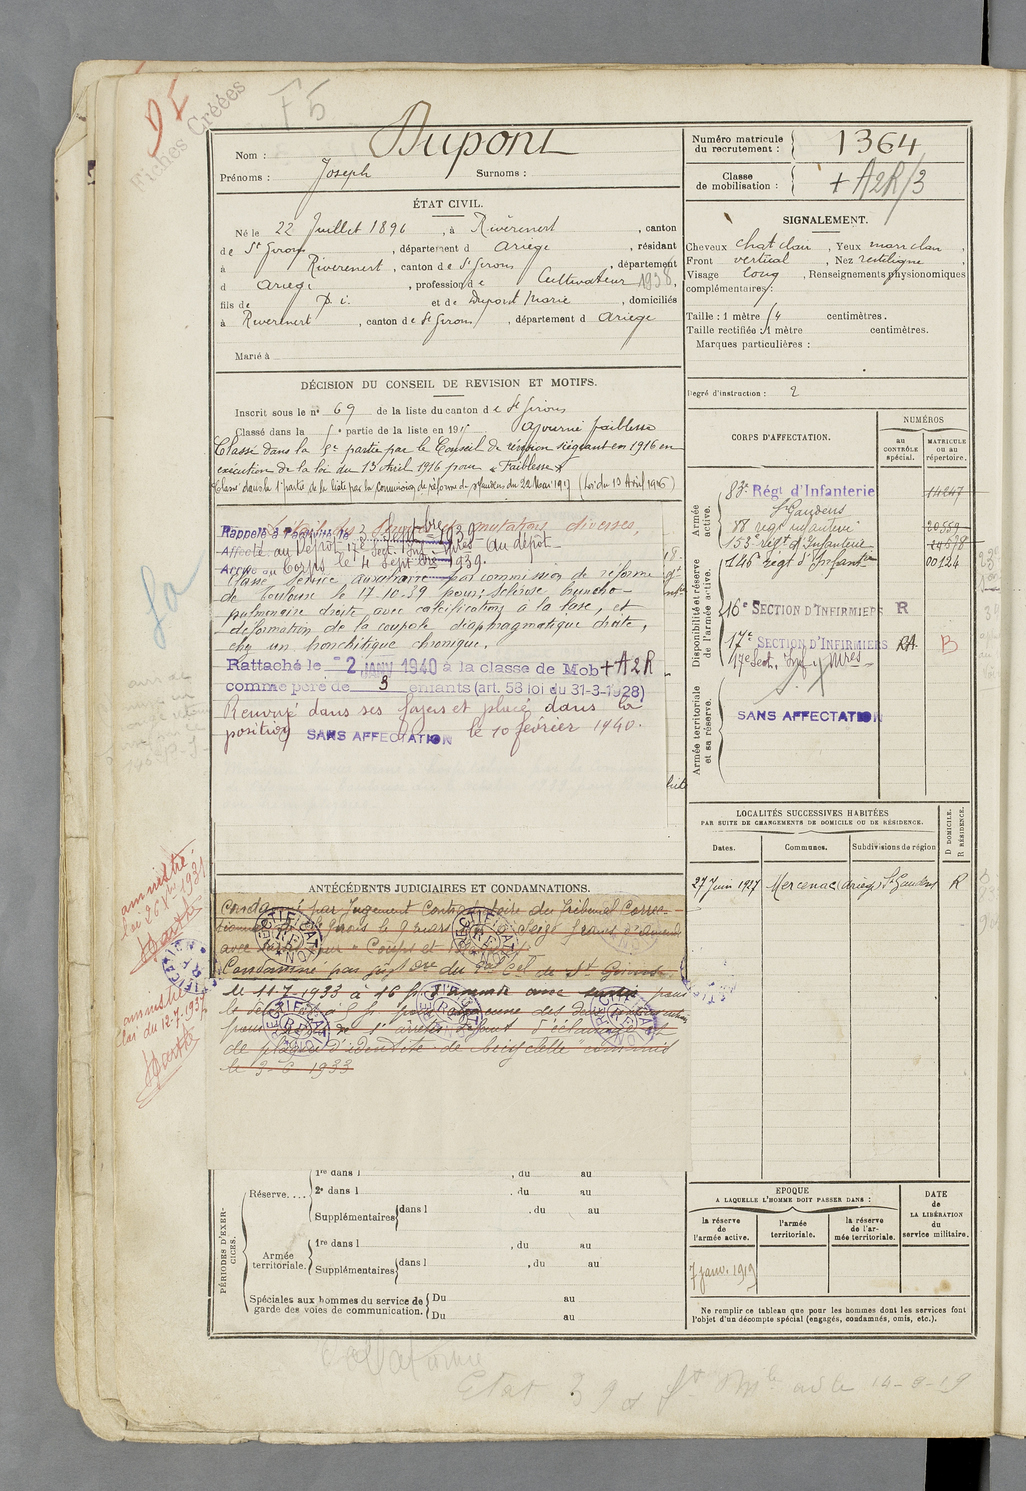 DE
Fiches Créées
F5
Nom : Dupont
Prénoms : Joseph Surnoms :
Numéro matricule du recrutement : 1364
Classe de mobilisation : + A2R/3
ÉTAT CIVIL.
Né le 22 Juillet 1896, à Rivèrenert, canton
de St Girons, département d Ariège, résidant
à Riverenert, canton de St Girons, département
d Ariege, profession de Cultivateur 1938,
fils de P. i. et de Dupont Marie, domiciliés
à Riverenert, canton de St Girons, département d Ariege
Marié à
SIGNALEMENT.
Cheveux chat clair, Yeux mar clair,
Front vertical, Nez rectiligne,
Visage long, Renseignements physionomiques
complémentaires :
Taille : 1 mètre centimètres.
Taille rectifiée : 1 mètre centimètres.
Marques particulières :
Degré d'instruction : 2
DÉCISION DU CONSEIL DE REVISION ET MOTIFS.
Inscrit sous le n° 69 de la liste du canton de St Girons
Classé dans la partie de la liste en 191 ajourné faiblesse
Classé dans la 5e partie par le Conseil de révision siégeant en 1916 en
exécution de la loi du 13 Avril 1916 pour « Faiblesse »
Classé dans la 1e partie de la liste par la commission de réforme de St Gaudens du 22 Mai 1917 (Loi du 13 Avril 1916)
Détail des services et mutations diverses.
Rappelé à l'activité le 2 Septembre 1939
Affecté au Dépôt 17e Sect. Inf. Mres au dépôt
Arrivé au Corps le 4 Septbre 1939.
Classé Service auxiliaire par commission de réforme
de Toulouse le 17.10.39 pour: Sclérose broncho-
pulmonaire droite, avec calcifications à la base, et
déformation de la coupole diaphragmatique droite,
chez un bronchitique chronique.
Rattaché le 2 JANV 1940 à la classe de Mob + A2R
comme père de 3 enfants (art. 58 loi du 31-3-1928)
Renvoyé dans ses foyers et placé dans la
position SANS AFFECTATION le 10 février 1940.
CORPS D'AFFECTATION.
NUMÉROS
au CONTRÔLE spécial.
MATRICULE ou au répertoire.
Armée active.
83e Régt d'Infanterie 14247
St Gaudens
88 régt infanterie 20559
153e régt d'Infanterie
Disponibilité et réserve de l'armée active.
146e Régt d'Infanterie 00124
16e SECTION D'INFIRMIERS R
17e SECTION D'INFIRMIERS RA B
17e Sect. Inf. Mres
Armée territoriale et sa réserve.
SANS AFFECTATION
LOCALITÉS SUCCESSIVES HABITÉES
PAR SUITE DE CHANGEMENTS DE DOMICILE OU DE RÉSIDENCE.
Dates. Communes. Subdivisions de région
D DOMICILE. R RÉSIDENCE.
27 Juin 1927 Mercenac (Ariège) St Gaudens R
ANTÉCÉDENTS JUDICIAIRES ET CONDAMNATIONS.
Condamné par Jugement Contradictoire du Tribunal Correc-
tionnel de St Girons le 9 mars à Seize francs d'amende
avec sursis pour "Coups et
Condamné par jugt du de St Girons
le 11-7-1933 à 16 fr d'amende avec sursis pour
le délit et à 5 fr pour chacune des deux contraventions
pour de 1er arrêté, défaut d'éclairage et
de plaque d'identité de bicyclette" commis
le 3-6-1933
RECTIFICATION R.F.
amnistié
loi 26 Xbre 1931
amnistié
loi du 12.7.1937
PÉRIODES D'EXERCICES.
Réserve....
1re dans l , du au
2e dans l , du au
Supplémentaires dans l , du au
Armée territoriale.
1re dans l , du au
Supplémentaires dans l , du au
Spéciales aux hommes du service de garde des voies de communication.
Du au
Du au
EPOQUE
A LAQUELLE L'HOMME DOIT PASSER DANS :
la réserve de l'armée active.
l'armée territoriale.
la réserve de l'armée territoriale.
DATE de LA LIBÉRATION du service militaire.
7 janv. 1919
Ne remplir ce tableau que pour les hommes dont les services font
l'objet d'un décompte spécial (engagés, condamnés, omis, etc.).
Etat 39
14-9-19